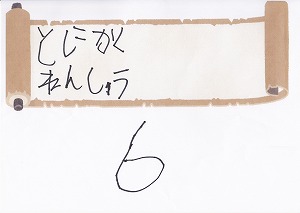 とにかく
れんしゅう
6